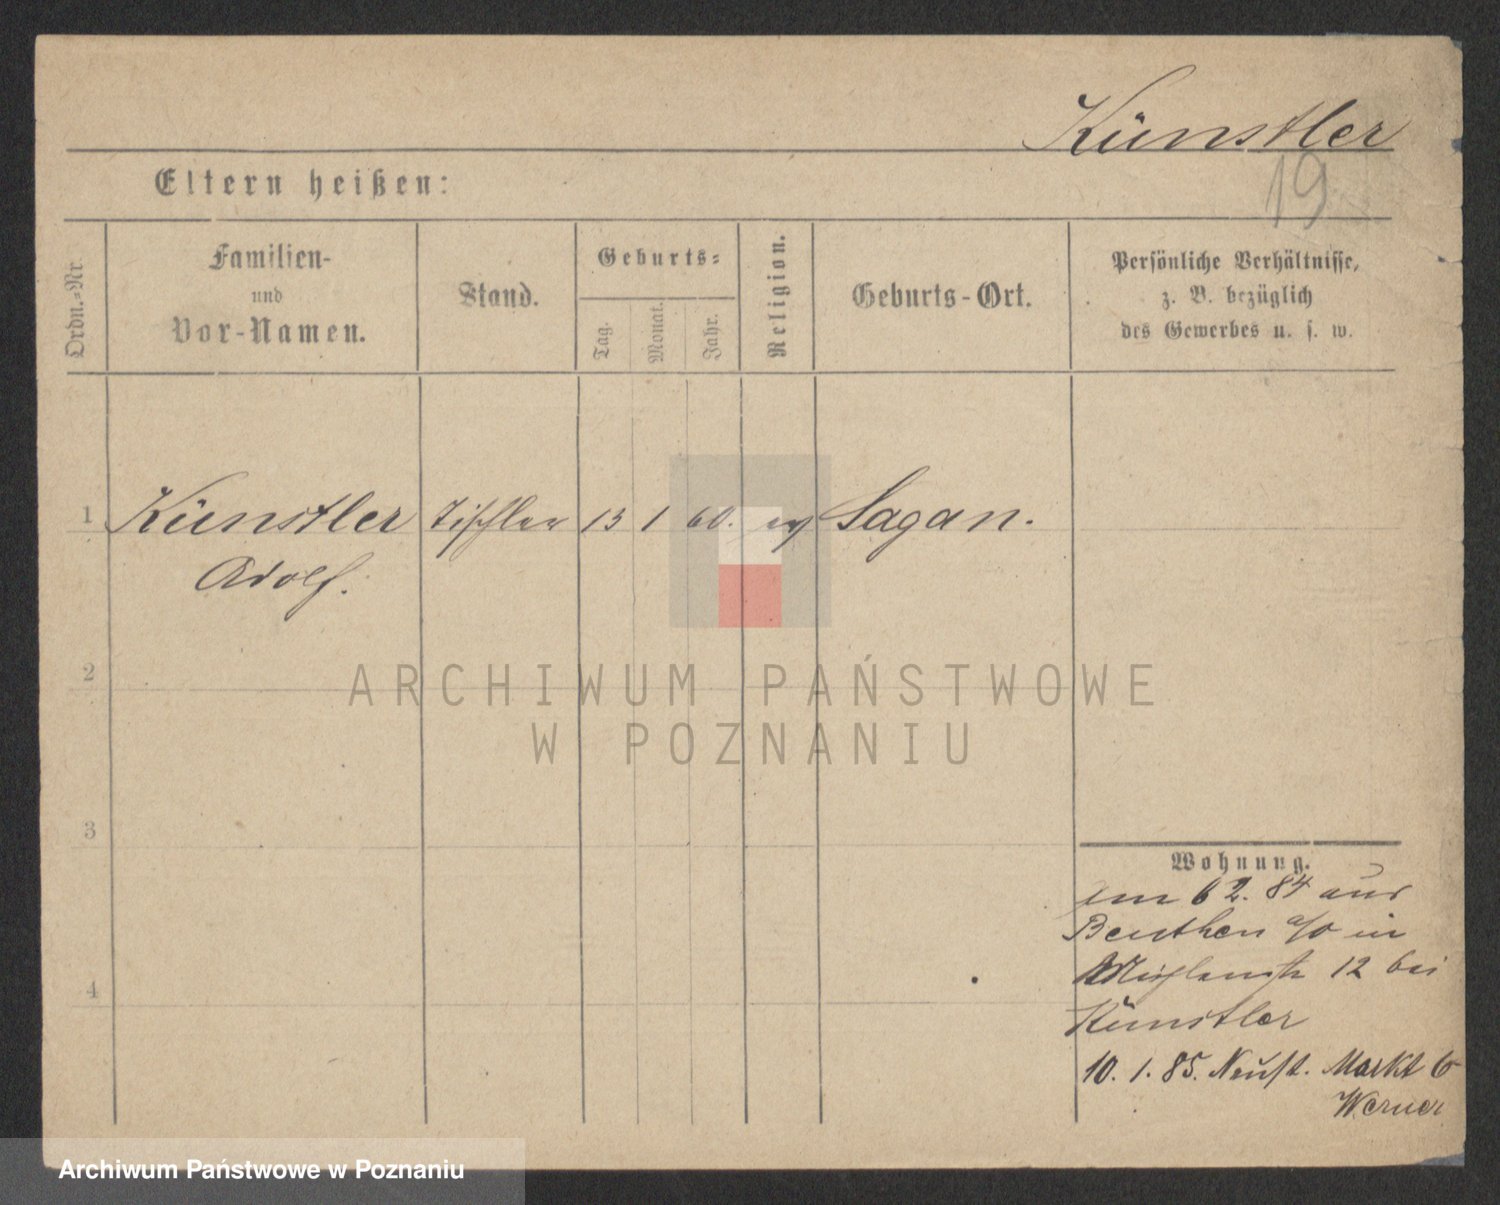 Künstler
19
Eltern heißen:
Ordn.=Nr.
Familien-
und
Vor-Namen.
Stand.
Geburts=
Tag.
Monat.
Jahr.
Religion.
Geburts-Ort.
Persönliche Verhältnisse,
z. B. bezüglich
des Gewerbes u. s. w.
1 Künstler Tischler 13 1 60. ev Sagan.
Adolf.
2
ARCHIWUM PAŃSTWOWE
W POZNANIU
3
Wohnung.
am 6 2. 84 aus
Beuthen a/O in
12 bei
4
Künstler
10. 1. 85. Neust. Markt 6
Werner
Archiwum Państwowe w Poznaniu